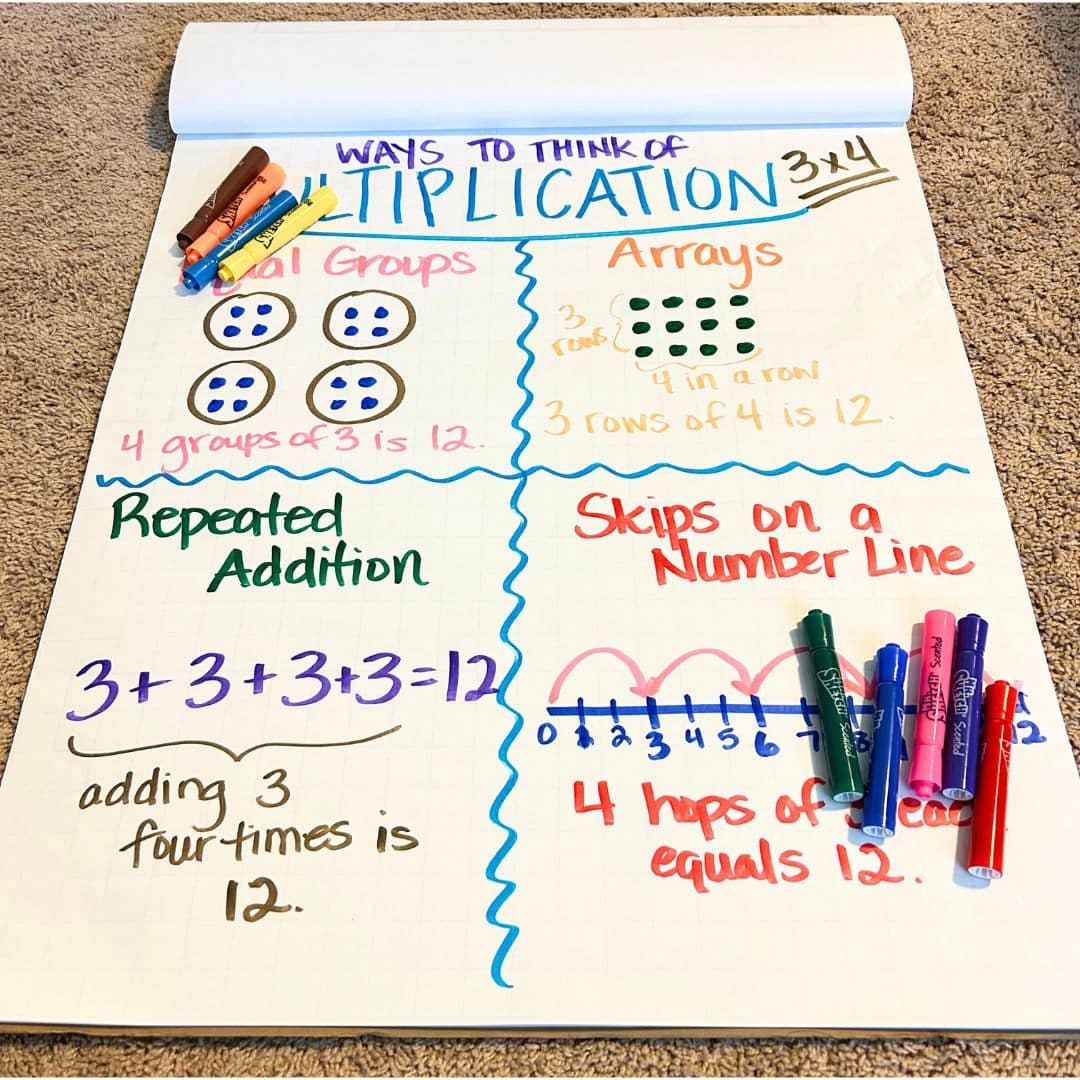 WAYS TO THINK OF
LTIPLICATION 3x4
al Groups
4 groups of 3 is 12.
Arrays
3
rows
4 in a row
3 rows of 4 is 12.
Repeated
Addition
3+3+3+3=12
adding 3
four times is
12.
Skips on a
Number Line
0 1 2 3 4 5 6 7 8 12
4 hops of
equals 12.
Sketch
Scented